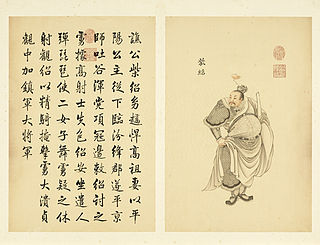 譙公柴紹矯趫悍高祖妻以平
陽公主從下臨汾絳郡遂平京
師吐谷渾党項寇邊敕紹討之
虜據高射士失色紹安坐遣人
彈琵琶使二女子舞虜疑之休
射觀紹以精騎掩擊虜大潰貞
觀中加鎮軍大將軍
柴紹